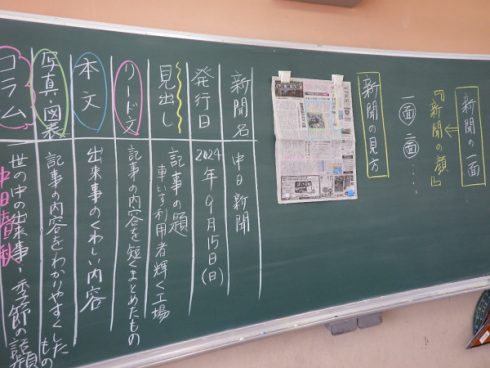 新聞の一面
『新聞の顔』
一面、二面、・・・
新聞の見方
新聞名 中日新聞
発行日 2024年9月15日(日)
見出し 記事の題
車いす利用者輝く工場
リード文 記事の内容を短くまとめたもの
本文 出来事のくわしい内容
写真・図表 記事の内容をわかりやすくしたもの
コラム 世の中の出来事・季節の話題
中日春秋